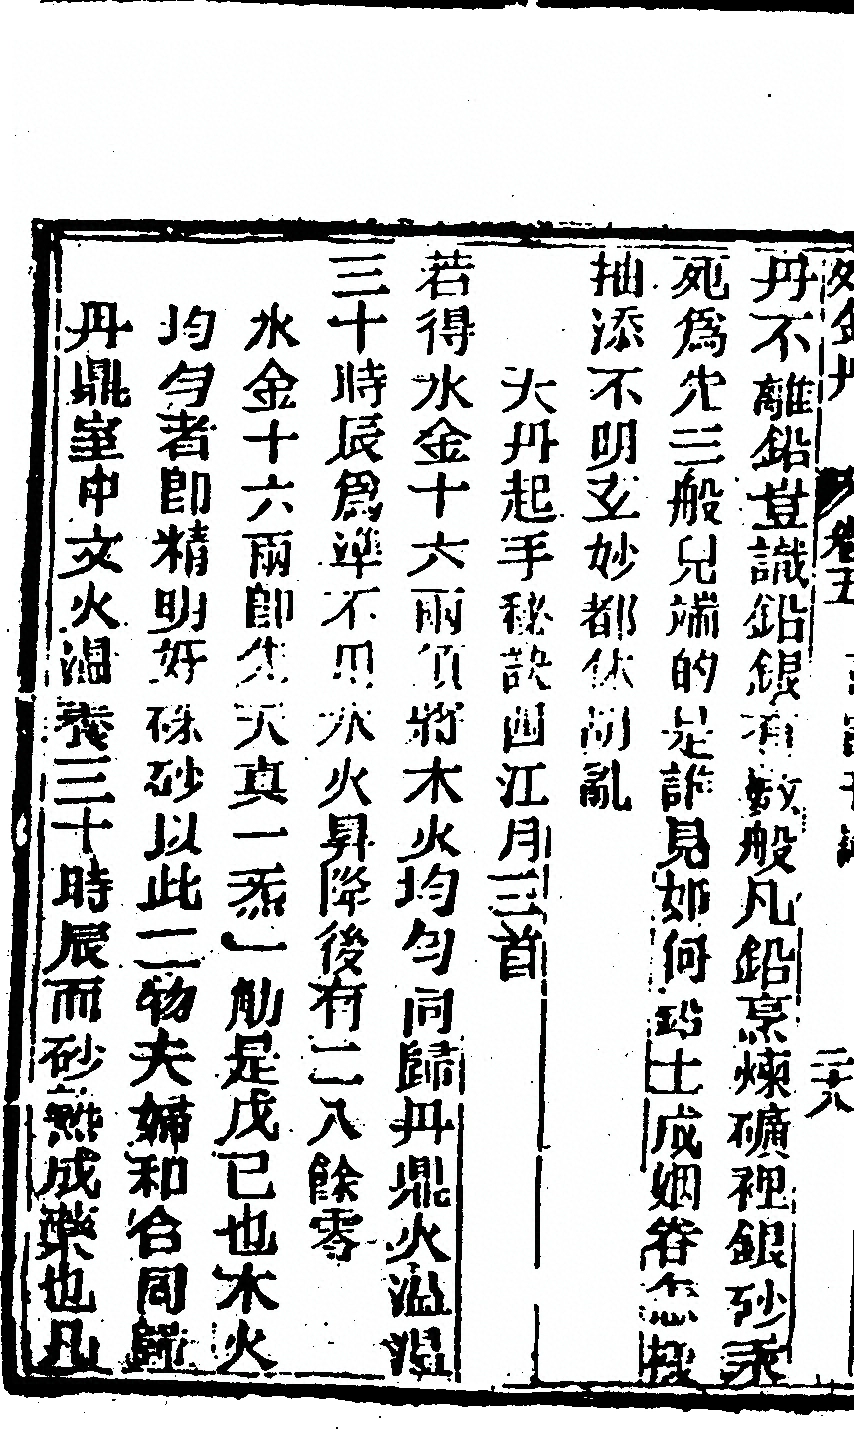 外金丹 卷五 二十八
丹不離鉛豈識鉛銀有數般凡鉛烹煉礦裡銀砂汞
死為先三般兒端的是誰見如何鉛士成姻眷怎
抽添不明玄妙都休胡亂
大丹起手秘訣西江月三首
若得水金十六兩須將木火均勻同歸丹鼎火溫溫
三十時辰為準不用水火昇降後有二八餘零
水金十六兩即先天真一炁一觔是戊己也木火
均勻者即精明好硃砂以此二物夫婦和合同歸
丹鼎室中文火溫養三十時辰而砂熟成藥也凡